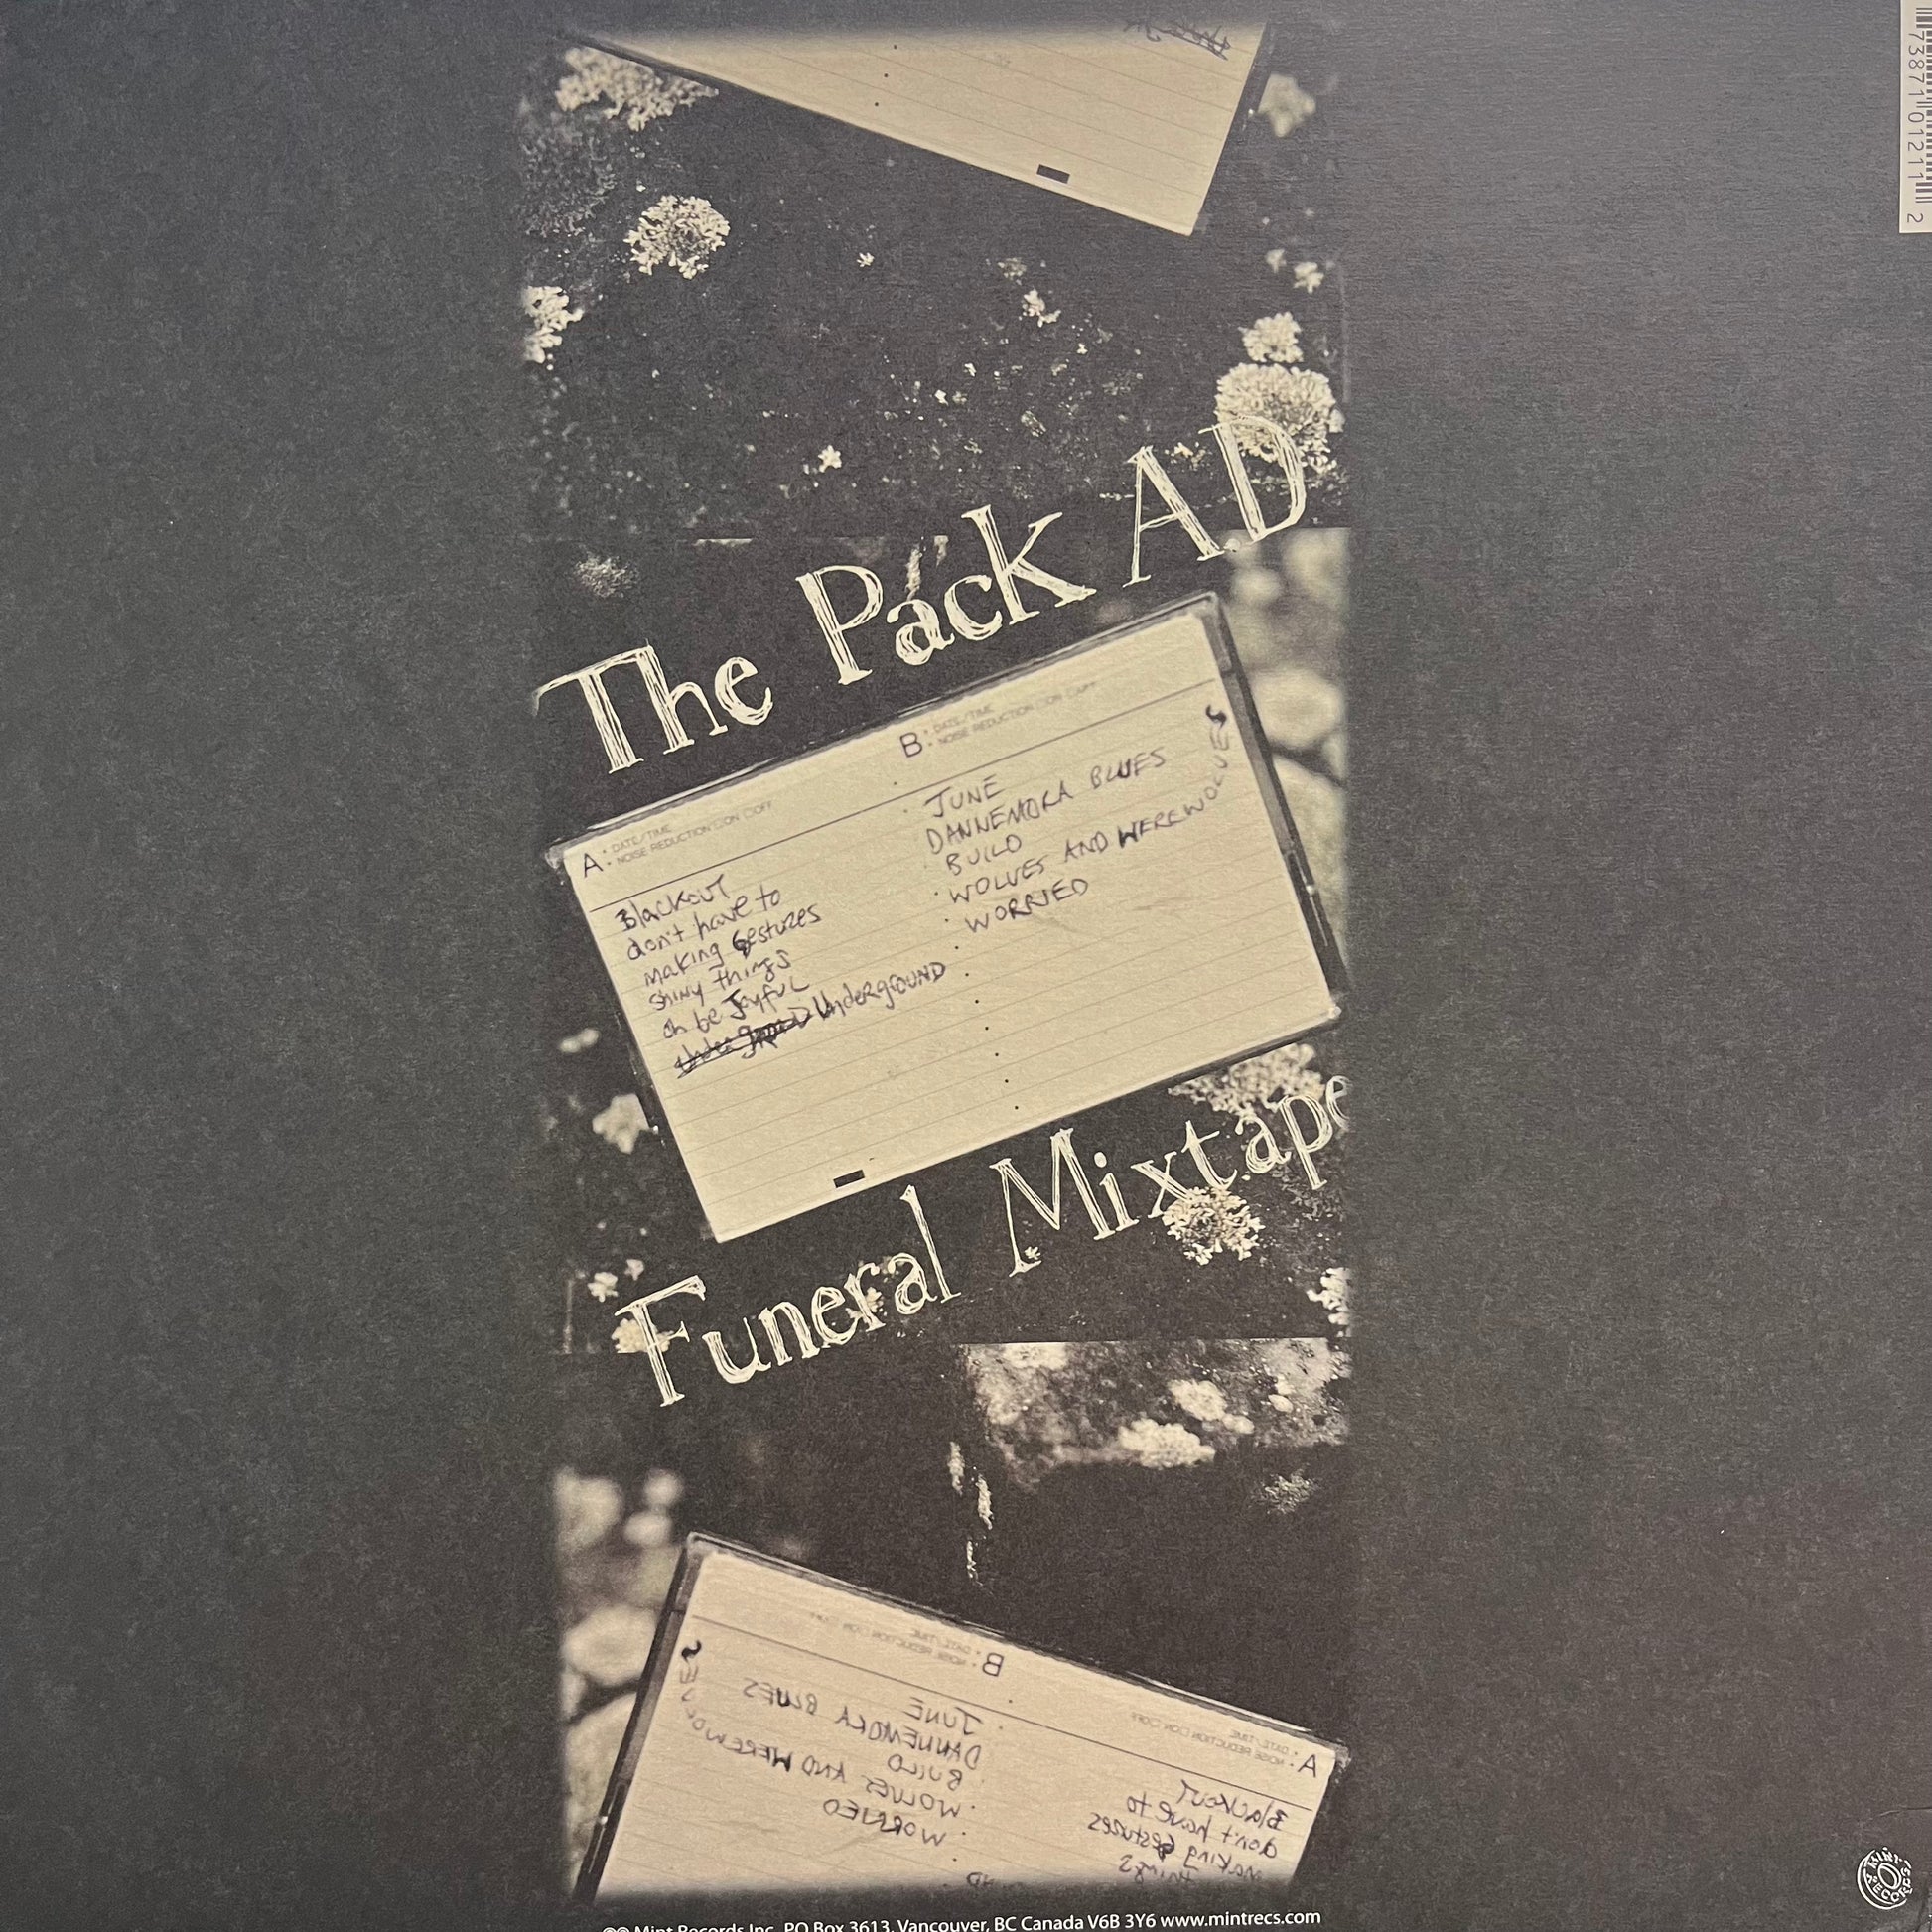 7 73871 01211 2
The Pack AD
A • DATE/TIME
• NOISE REDUCTION □ON □OFF
Blackout
don't have to
making Gestures
shiny things
oh be Joyful
Underground
B • DATE/TIME
• NOISE REDUCTION □ON □OFF
JUNE
DANNEMORA BLUES
BUILD
WOLVES AND WEREWOLVES
WORRIED
Funeral Mixtape
B • DATE/TIME
• NOISE REDUCTION □ON □OFF
JUNE
DANNEMORA BLUES
BUILD
WOLVES AND WEREWOLVES
WORRIED
A • DATE/TIME
• NOISE REDUCTION □ON □OFF
Blackout
don't have to
making Gestures
things
Mint Records Inc. PO Box 3613, Vancouver, BC Canada V6B 3Y6 www.mintrecs.com
MINT RECORDS